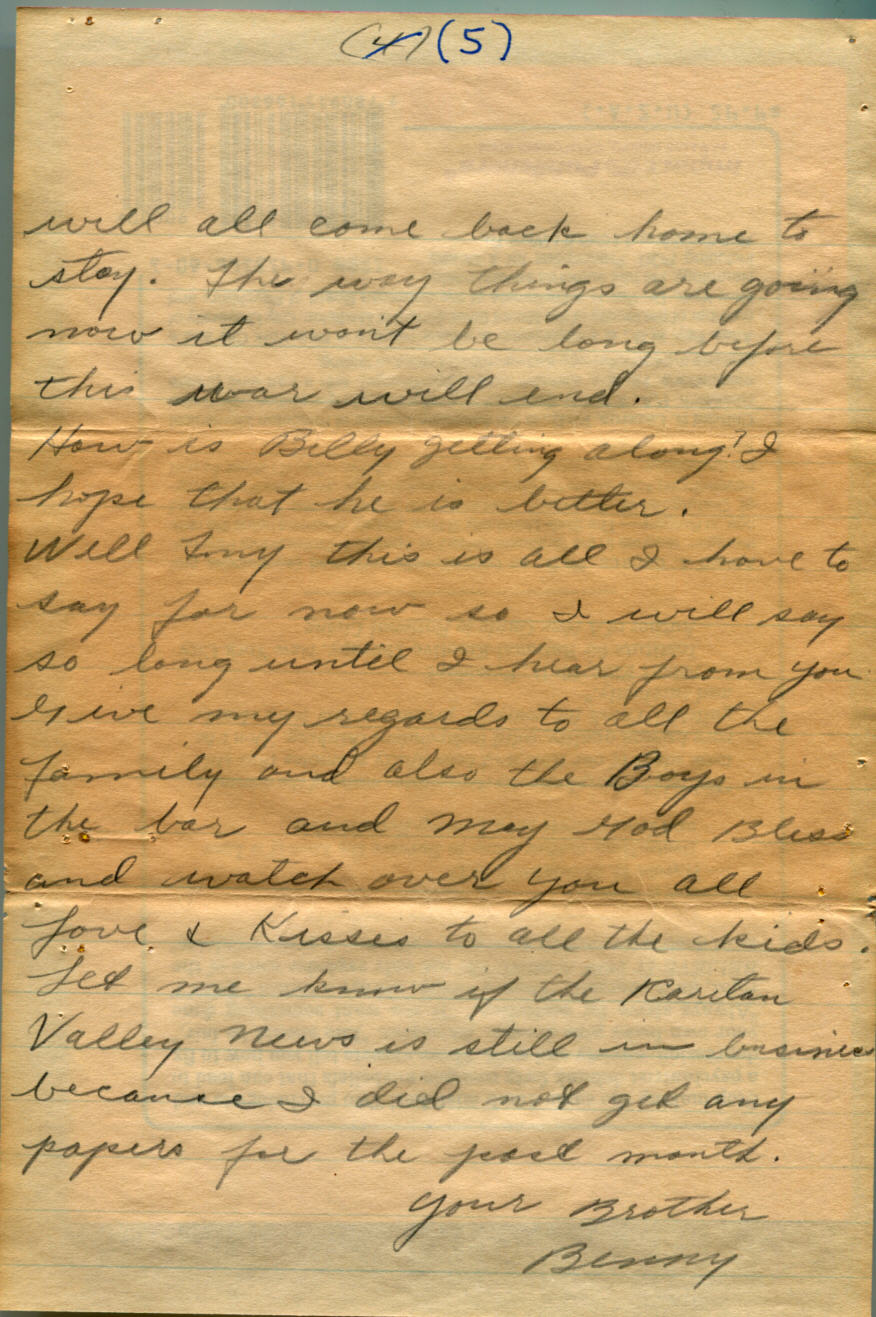 (4) (5)
will all come back home to
stay. The way things are going
now it won't be long before
this war will end.
How is Billy getting along? I
hope that he is better.
Well Tony this is all I have to
say for now so I will say
so long until I hear from you
Give my regards to all the
family and also the Boys in
the bar and may God Bless
and watch over you all
Love & Kisses to all the kids.
Let me know if the Raritan
Valley News is still in business
because I did not get any
papers for the past month.
Your Brother
Benny